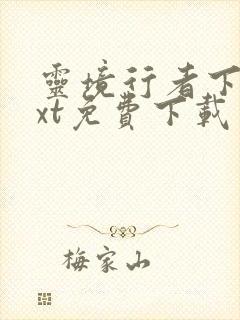 靈境行者下
xt免費下載
梅家山